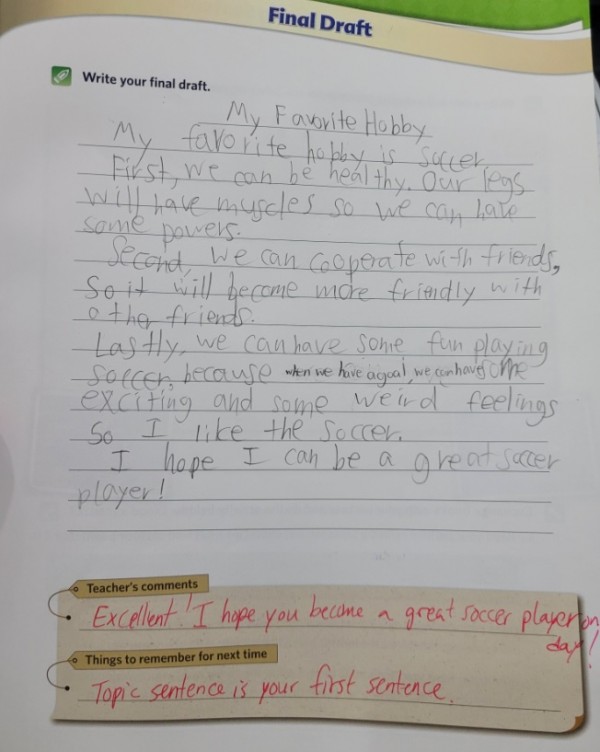 Final Draft
Write your final draft.
My Favorite Hobby
My favorite hobby is soccer.
First, we can be healthy. Our legs
will have muscles so we can have
some powers.
Second, we can cooperate with friends,
So it will become more friendly with
other friends.
Lastly, we can have some fun playing
soccer, because when we have a goal, we can have some
exciting and some weird feelings
So I like the soccer.
I hope I can be a great soccer
player!
Teacher's comments
Excellent! I hope you become a great soccer player on
day!
Things to remember for next time
Topic sentence is your first sentence.